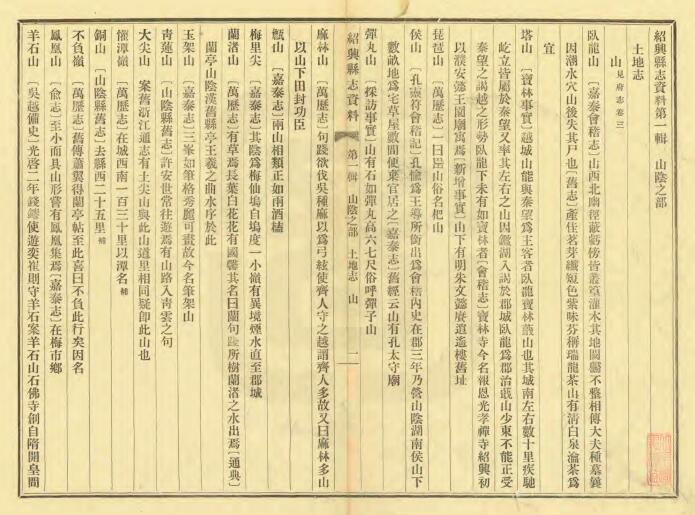 紹興縣志資料第一輯　山陰之部
土地志
山　見府志卷三
臥龍山　〔嘉泰會稽志〕山西北幽徑蔽虧傍皆叢篁灌木其地闃闢不整相傳大夫種墓
因潮水穴山後失其尸也〔舊志〕產佳茗芽纖短色紫味芬稱瑞龍茶山有清白泉瀹茶爲
宜
塔山　〔寶林事實〕越城山能與秦望爲主客者臥龍寶林蕺山也其城南左右數十里疾馳
屹立皆屬於秦望又率其左右之山因鑑湖入謁於郡城臥龍爲郡治蕺山少東不能正受
秦望之謁越之形勢臥龍下未有如寶林者〔會稽志〕寶林寺今名報恩光孝禪寺紹興初
以濮安懿王園廟寓焉〔新增事實〕山下有明朱文懿賡逍遙樓舊址
琵琶山　〔萬歷志〕一曰𦫿山俗名杷山
侯山　〔孔靈符會稽記〕孔愉爲王導所銜出爲會稽內史在郡三年乃營山陰湖南侯山下
數畝地爲宅草屋數間便棄官居之〔嘉泰志〕舊經云山有孔太守廟
彈丸山　〔採訪事實〕山有石如彈丸高六七尺俗呼彈子山
紹興縣志資料　第一輯　山陰之部　土地志　山　一
麻林山　〔萬歷志〕句踐欲伐吳種麻以爲弓絃使齊人守之越謂齊人多故又曰麻林多山
以山下田封功臣
甑山　〔嘉泰志〕兩山相類正如兩酒榼
梅里尖　〔嘉泰志〕其陰爲梅仙塢自塢度一小嶺有異境煙水直至郡城
蘭渚山　〔萬歷志〕有草焉長葉白花花有國馨其名曰蘭句踐所樹蘭渚之水出焉〔通典〕
蘭亭山陰漢舊縣亭王羲之曲水序於此
玉架山　〔嘉泰志〕三峯如筆格秀麗可畫故今名筆架山
青蓮山　〔山陰縣舊志〕許安世常往遊焉有山路入青雲之句
大尖山　案舊浙江通志有土尖山與此山道里相同疑即此山也
懽潭嶺　〔萬歷志〕在城西南一百三十里以潭名補
銅山　〔山陰縣舊志〕去縣西二十五里補
不負嶺　〔萬歷志〕舊傳蕭翼得蘭亭帖至此喜曰不負此行矣因名
鳳凰山　〔俞志〕至小而具山形嘗有鳳凰集焉〔嘉泰志〕在梅市鄉
羊石山　〔吳越備史〕光啓二年錢鏐使遊奕崔則守羊石案羊石山石佛寺創自隋開皇間